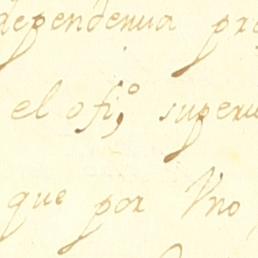 dependencia pro
el ofi,º superv
que por Vno,